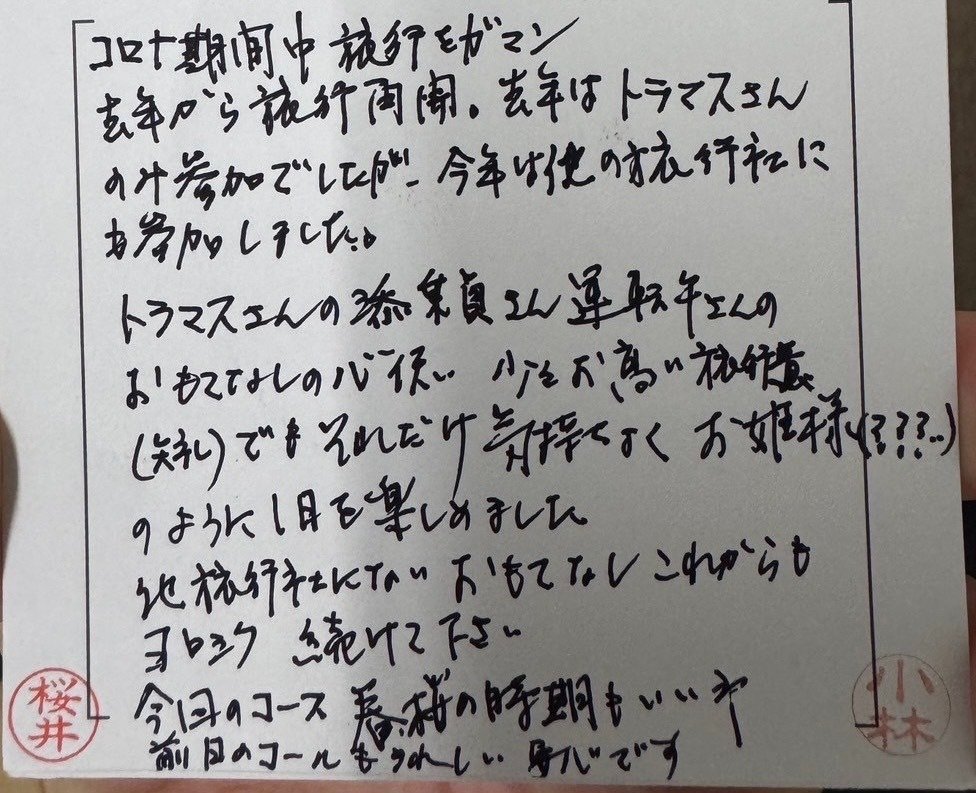 コロナ期間中旅行をガマン
去年から旅行再開。去年はトラマスさん
のみ参加でしたが、今年は他の旅行社に
も参加しました。
トラマスさんの添乗員さん運転手さんの
おもてなしの心使い 少々お高い旅行費
(失礼)でもそれだけ気持ちよくお姫様(???..)
のように1日を楽しめました。
他旅行社にないおもてなしこれからも
ヨロシク 続けて下さい
今日のコース 春、桜の時期もいいや
前日のコールもうれしい です
桜井
小林